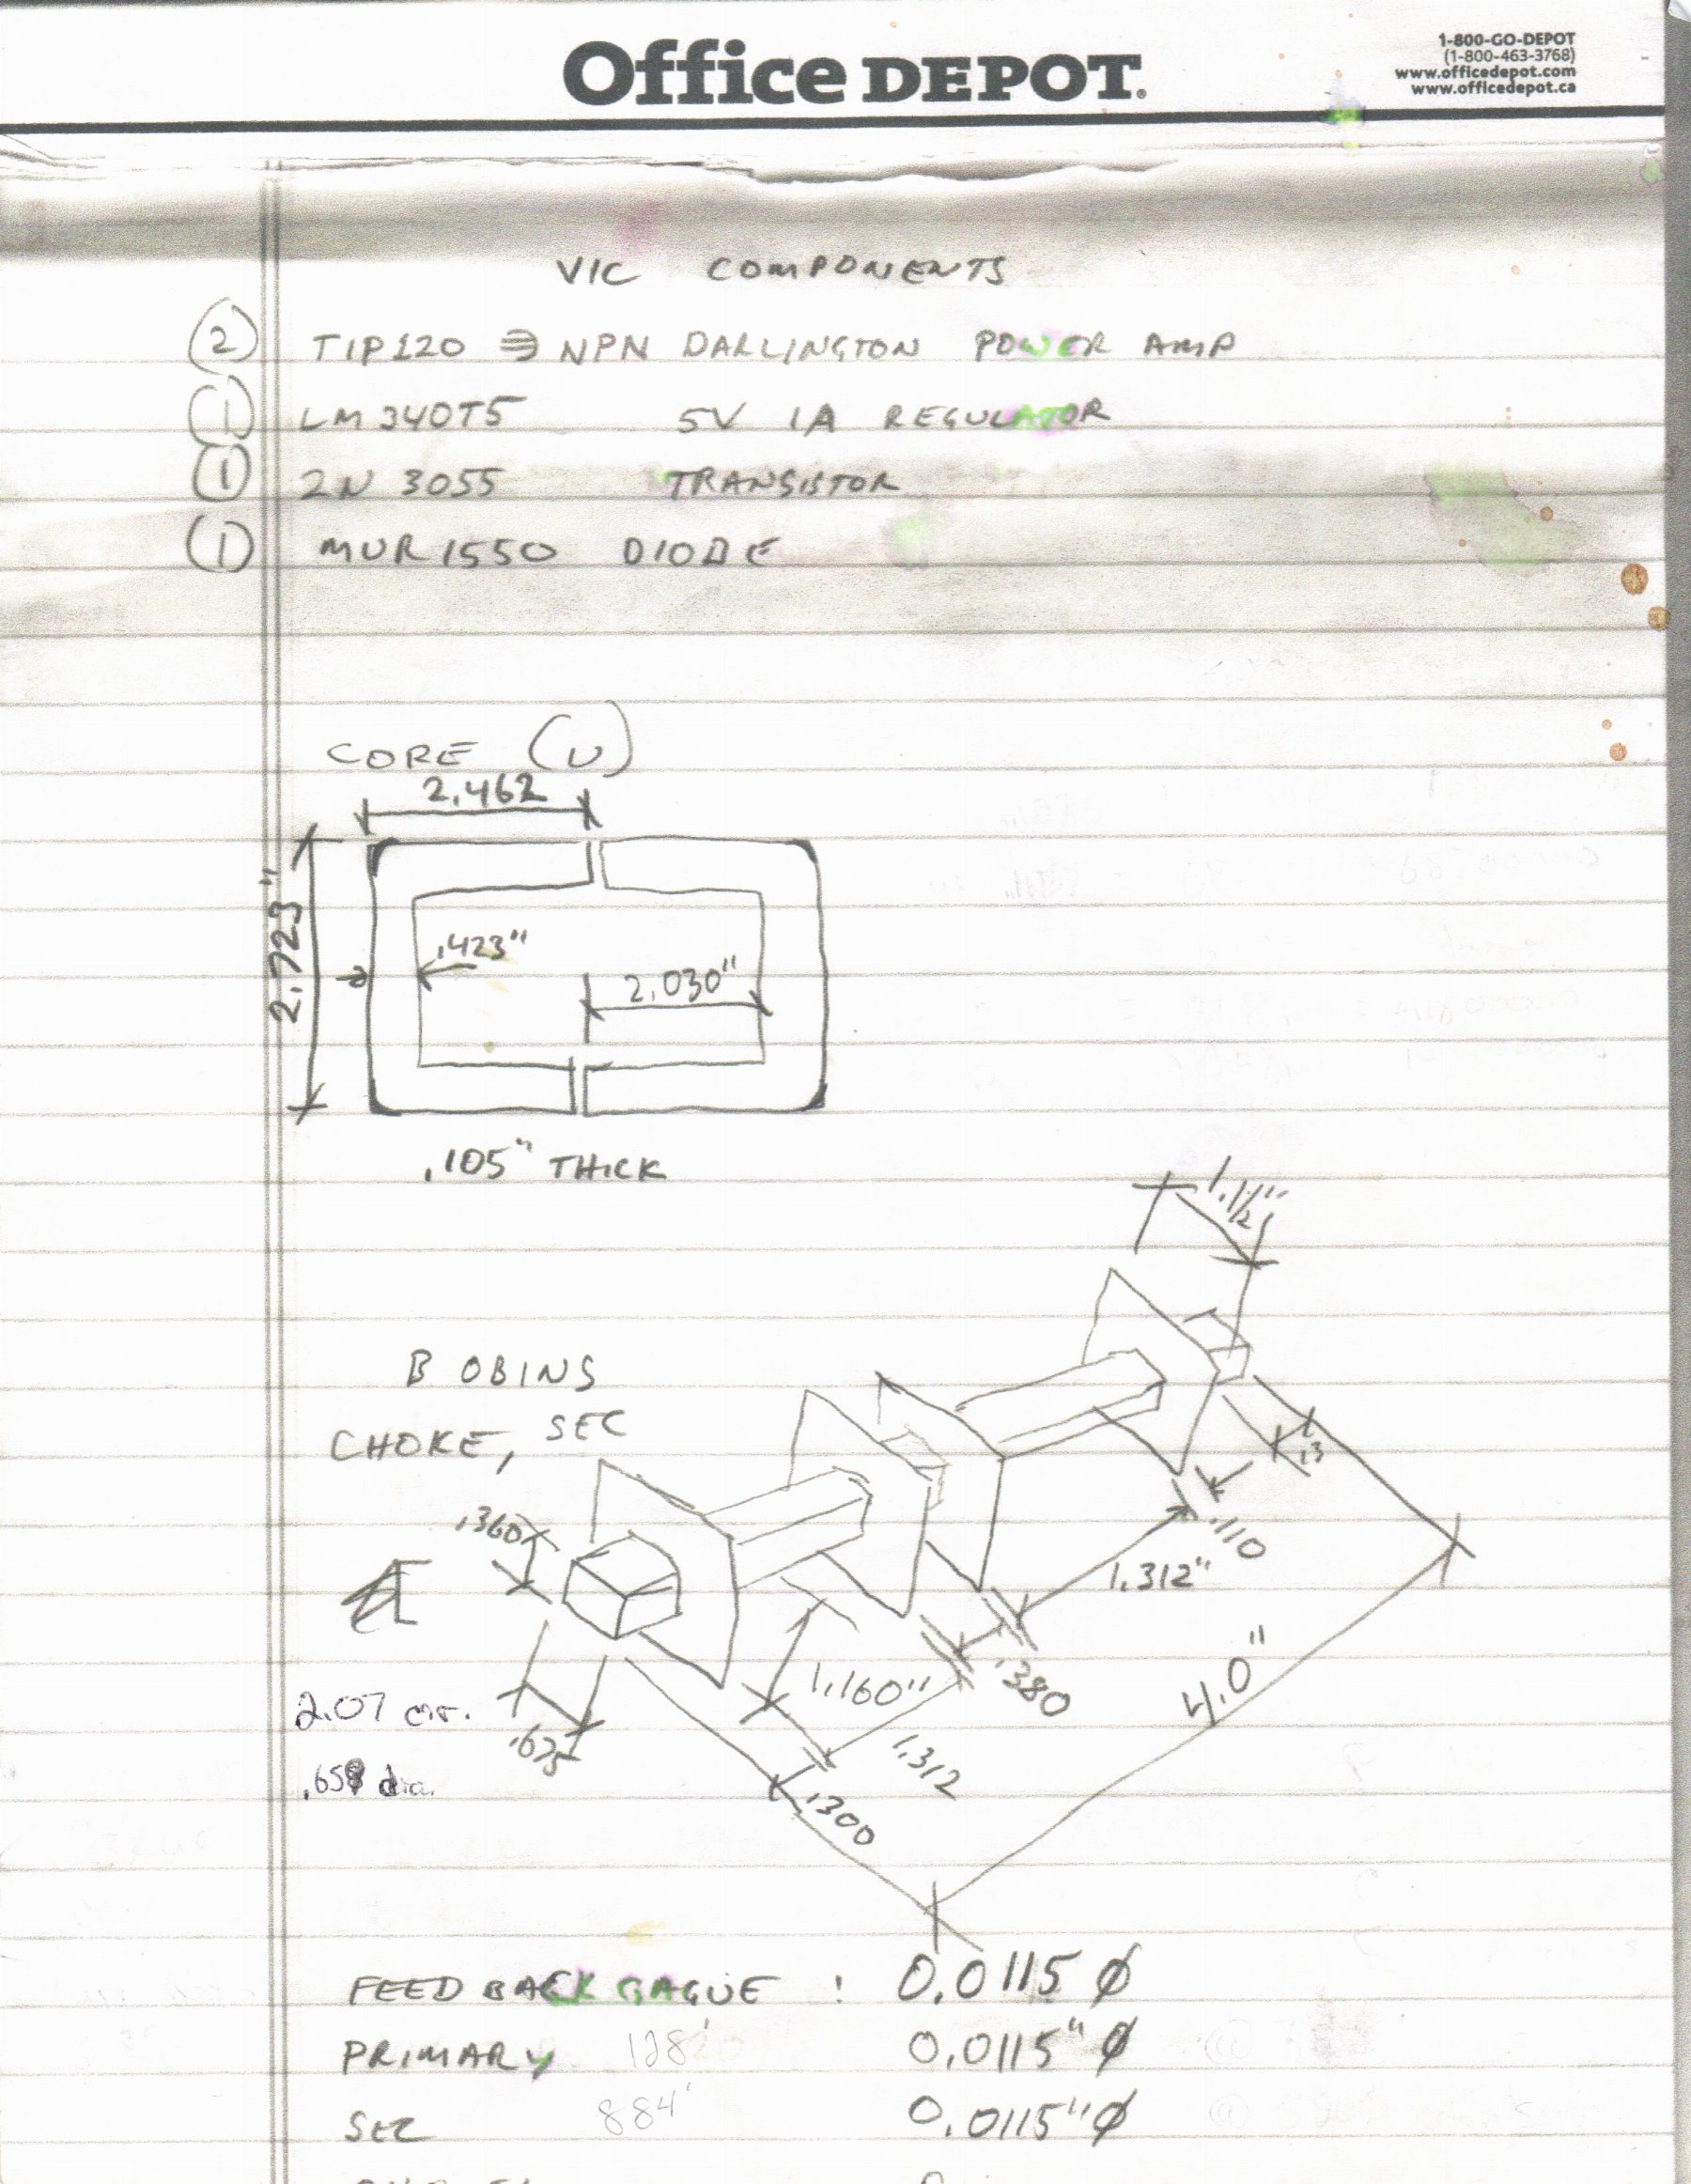 Office DEPOT
1-800-GO-DEPOT
(1-800-463-3768)
www.officedepot.com
www.officedepot.ca
VIC COMPONENTS
2 TIP120 NPN DARLINGTON POWER AMP
1 LM340T5 5V 1A REGULATOR
1 2N 3055 TRANSISTOR
1 MUR1550 DIODE
CORE (U)
2.462
2.723"
.423"
2.030"
.105" THICK
1.1/2"
BOBINS
CHOKE, SEC
.13
.360
.110
1.312"
.380
4.0"
1.160"
2.07 cir.
.675
1.312
.658 dia.
.300
FEED BACK GAGUE : 0.0115 Ø
PRIMARY 128' 0.0115" Ø
SEC 884' 0.0115" Ø